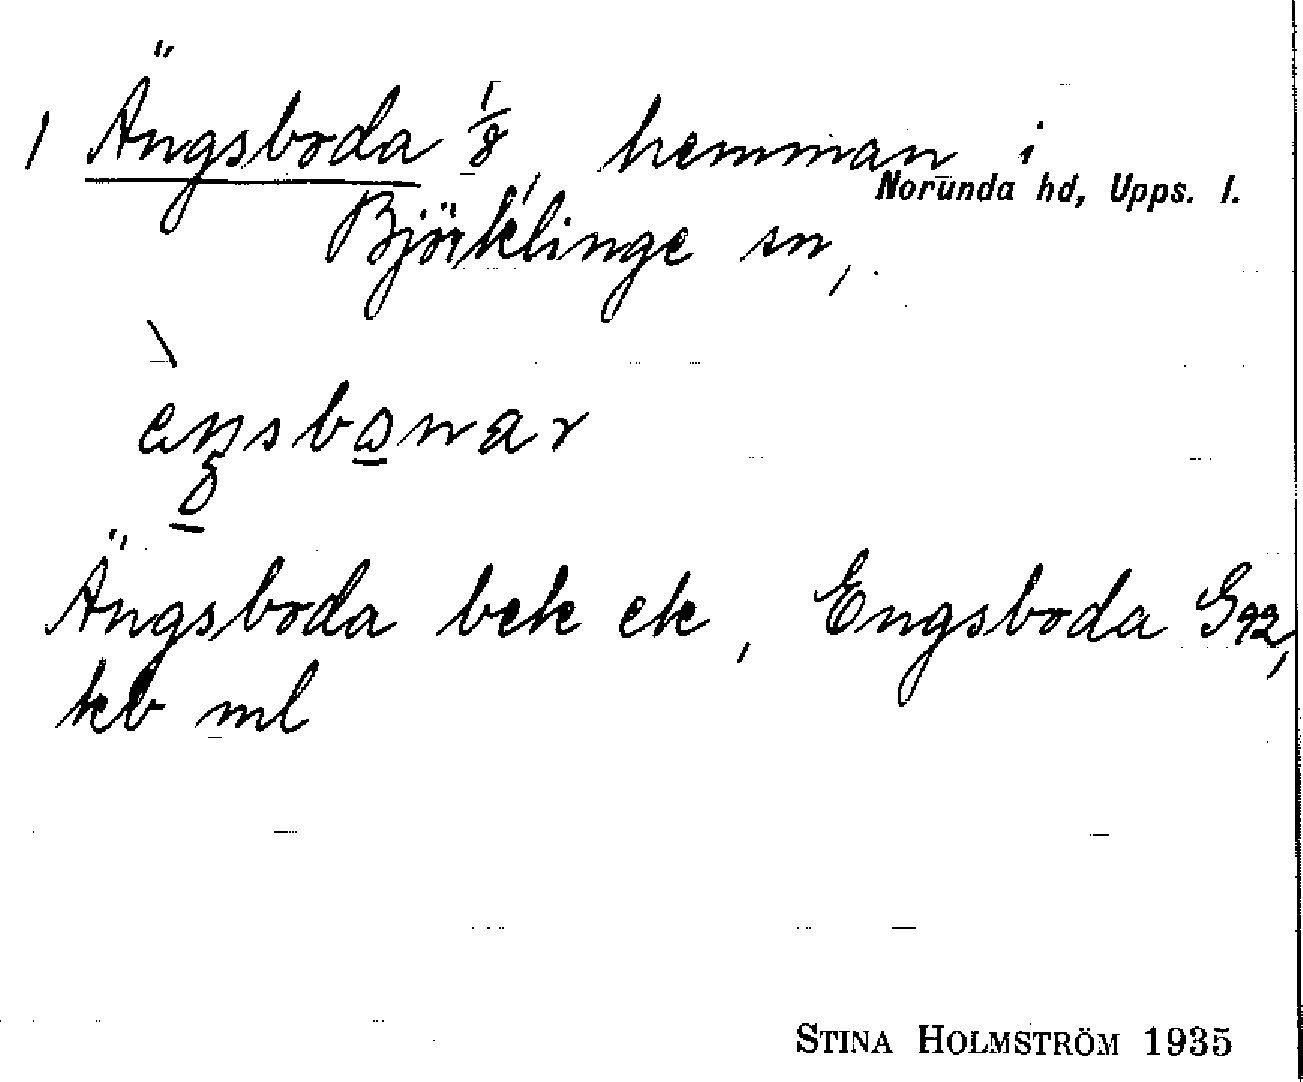 1 Ängsboda 1/8, hemman i
Norunda hd, Upps. l.
Björklinge sn,
Ängsboda bek ek, Engsboda G92,
kb ml
STINA HOLMSTRÖM 1935